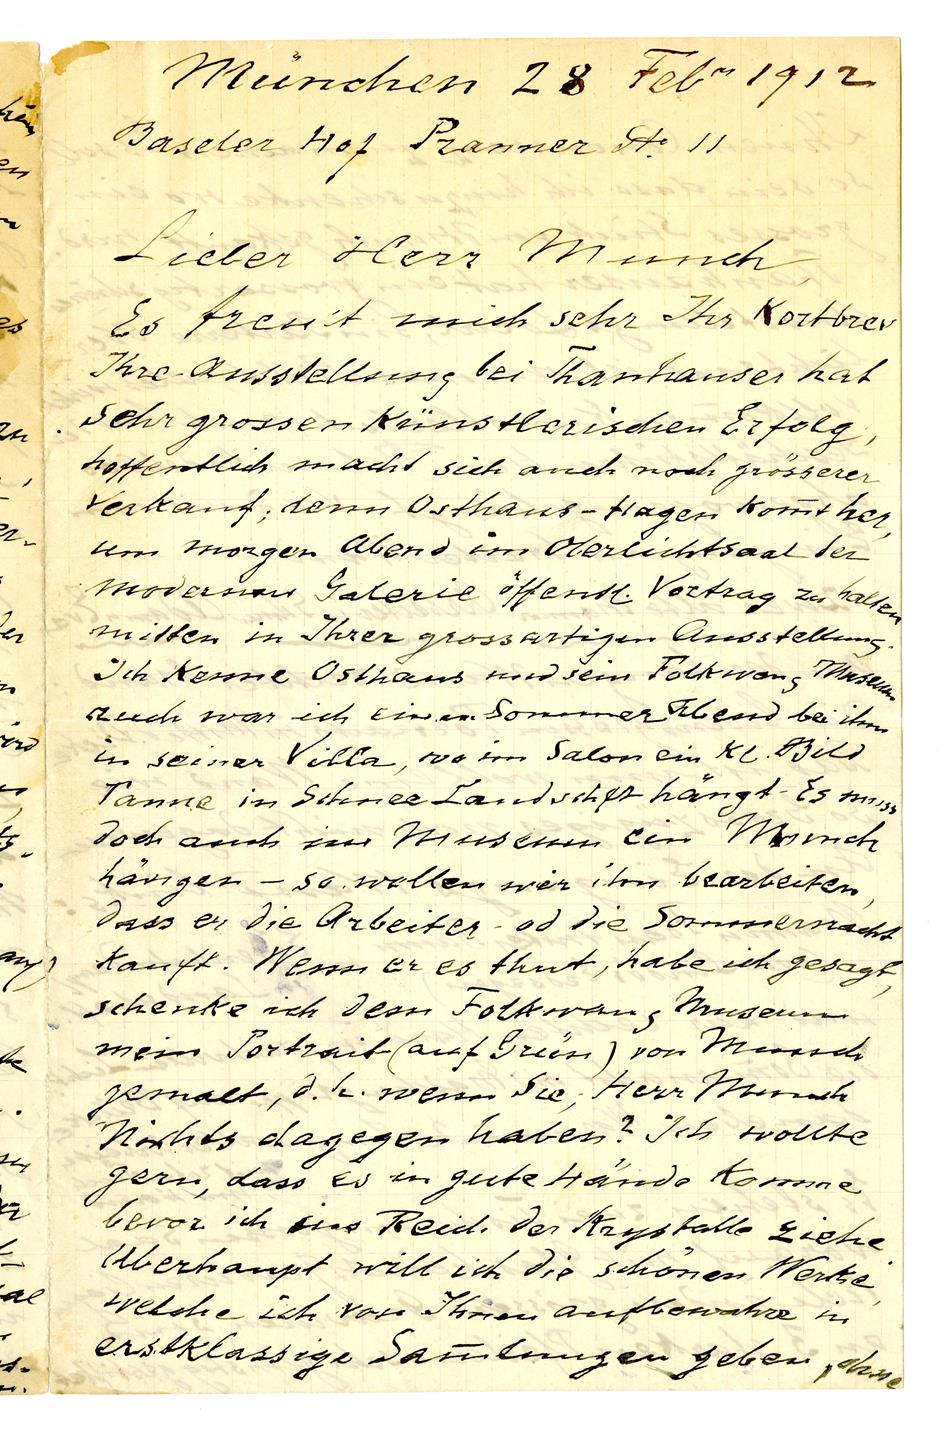 München 28 Feb. 1912
Baseler Hof Pranner St. 11
Lieber Herr Munch
Es freut mich sehr Ihr Kortbrev
Ihre Ausstellung bei Thanhauser hat
sehr grossen Künstlerischen Erfolg,
hoffentlich macht sich auch noch grösserer
Verkauf; denn Osthaus-Hagen kom̄t her,
um morgen Abend im Oberlichtsaal der
modernen Galerie öffentl. Vortrag zu halten
mitten in Ihrer grossartigen Ausstellung.
Ich Kenne Osthaus und sein Folkwang Museum
auch war ich einen Sommer Abend bei ihm
in seiner Villa, wo im Salon ein Kl. Bild
Tanne in Schnee Landschaft hängt - Es muss
doch auch im Museum ein Munch
hängen - so wollen wir ihn bearbeiten,
dass er die Arbeiter - od die Sommernacht
kauft. Wenn er es thut, habe ich gesagt,
schenke ich dem Folkwang Museum
mein Portrait (auf Grün) von Munch
gemalt, d. h. wenn Sie, Herr Munch
Nichts dagegen haben? Ich wollte
gern, dass es in gute Hände Komme
bevor ich ins Reich der Krystalle ziehe
Überhaupt will ich die schönen Werke,
welche ich von Ihnen aufbewahre in
erstklassige Sam̄lungen geben, ohne